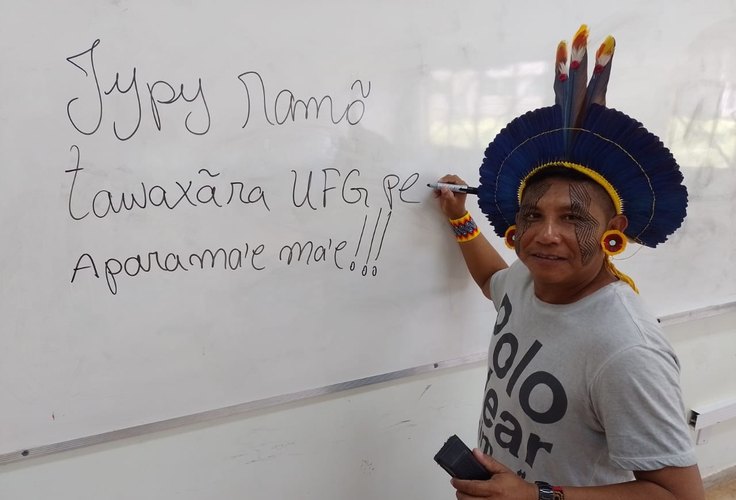 Jypy Namõ
tawaxãra UFG pe
Aparama'e ma'e!!!
Polo
Wear